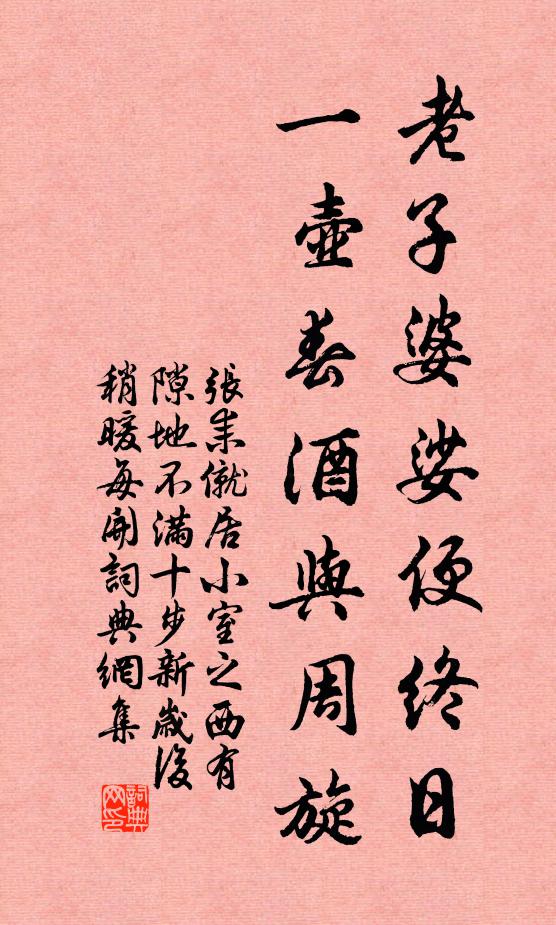 老子婆娑便終日
一壺春酒與周旋
張耒僦居小室之西有
隙地不滿十步新歲後
稍暖每開詞典網集
詞典網印